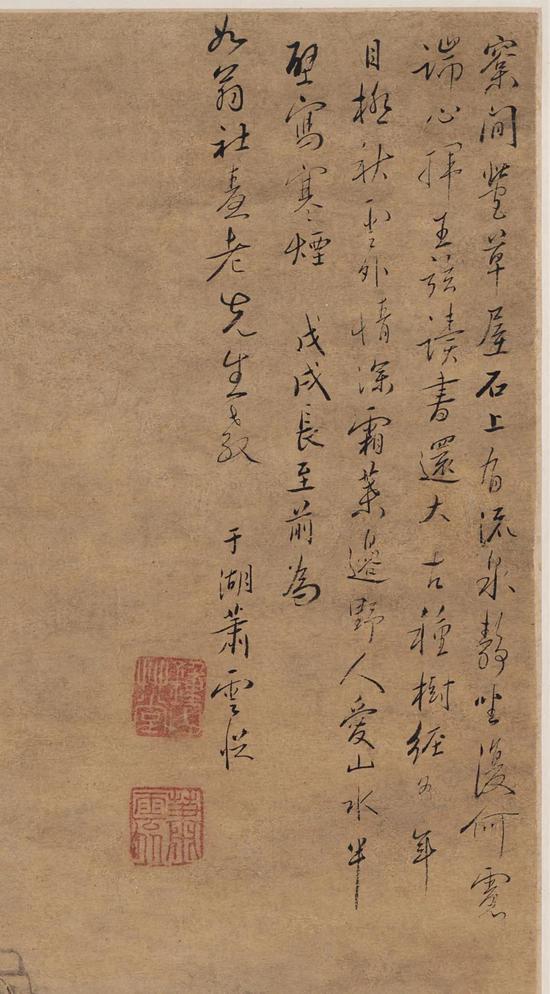 案間䖝草屋石上有流泉靜坐復何慮
端心揮玉弦讀書還大古種樹經五年
目極秋雲外情深霜葉邊野人愛山水半
壁寫寒煙 戊戌長至前為
翁社臺老先生教
于湖蕭雲從
蕭雲從